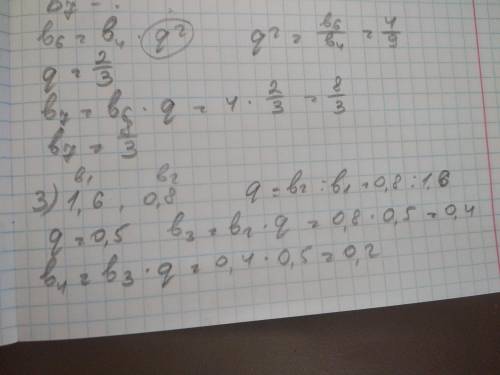 b₇ = 
b₆ = b₄ · q²   q² = b₆/b₄ = 4/9
q = 2/3
b₇ = b₆ · q = 4 · 2/3 = 8/3
b₇ = 8/3
b₁ b₂
3) 1,6 , 0,8   q = b₂ : b₁ = 0,8 : 1,6
q = 0,5   b₃ = b₂ · q = 0,8 · 0,5 = 0,4
b₄ = b₃ · q = 0,4 · 0,5 = 0,2